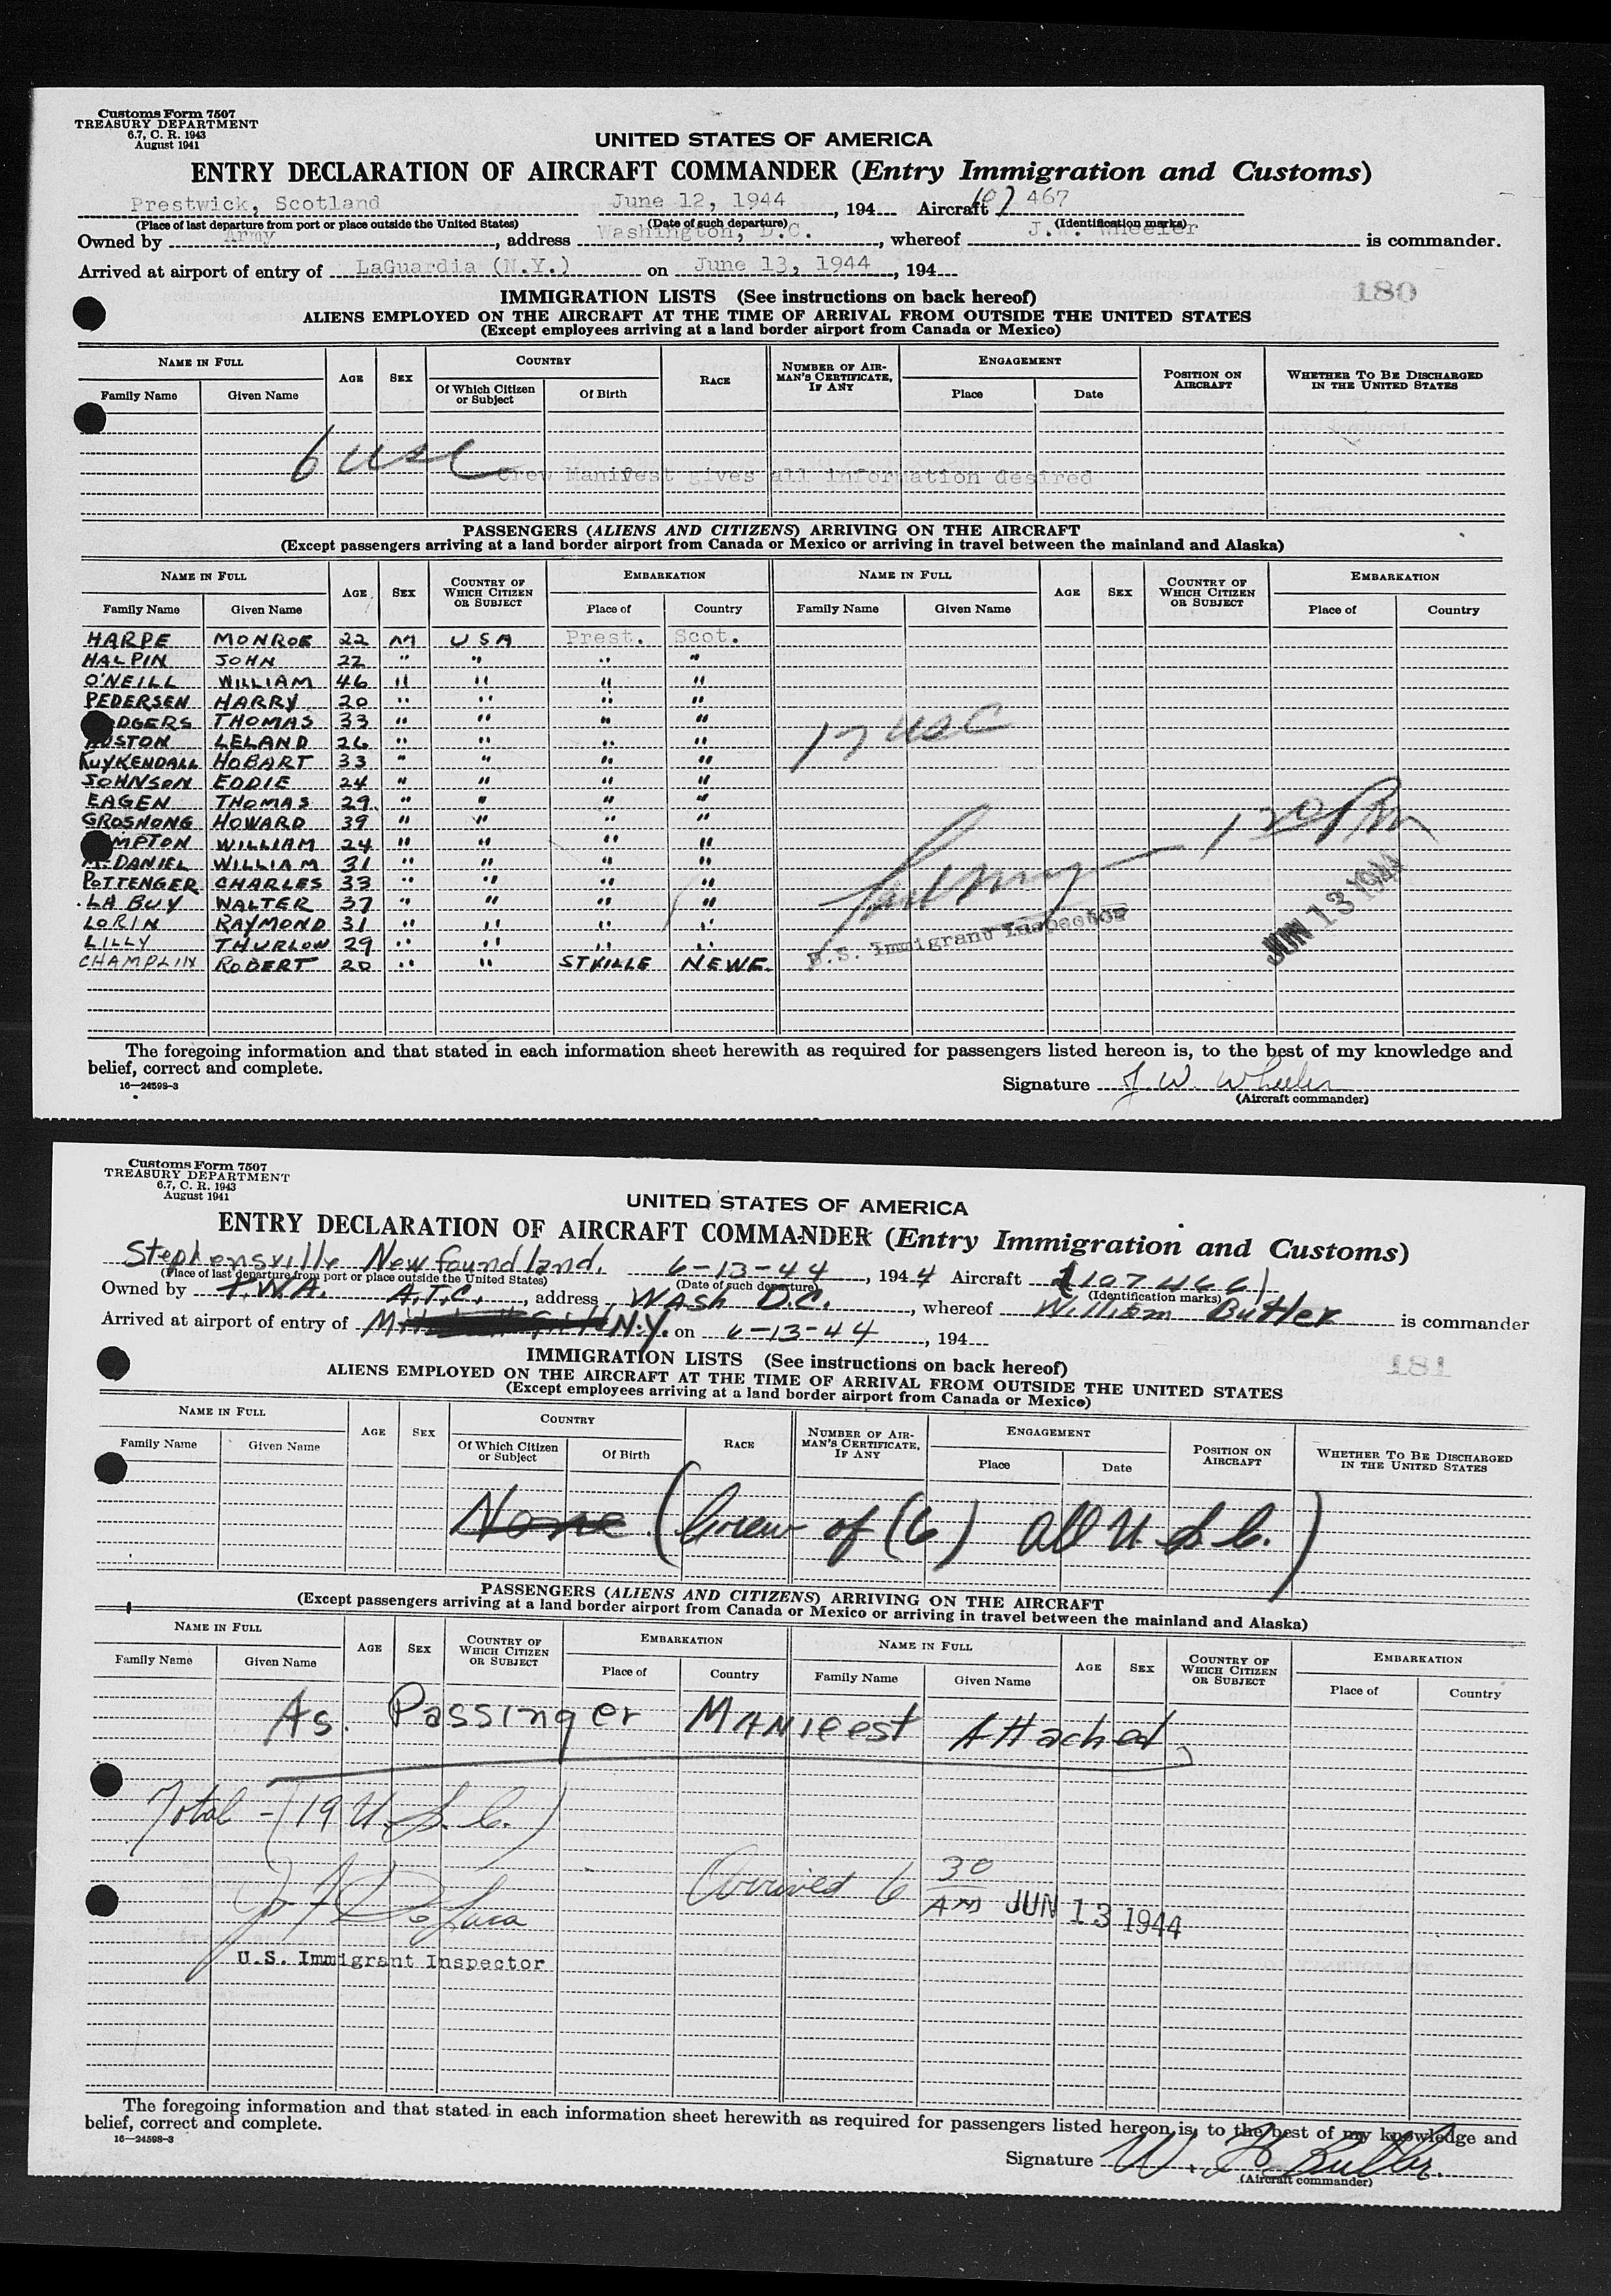 Customs Form 7507
TREASURY DEPARTMENT
6.7, C. R. 1943
August 1941
UNITED STATES OF AMERICA
ENTRY DECLARATION OF AIRCRAFT COMMANDER (Entry Immigration and Customs)
Prestwick, Scotland June 12, 1944, 194 Aircraft 107 467
(Place of last departure from port or place outside the United States) (Date of such departure) (Identification marks)
Owned by Army, address Washington, D.C., whereof J.W. Wheeler is commander.
Arrived at airport of entry of LaGuardia (N.Y.) on June 13, 1944, 194
180
IMMIGRATION LISTS (See instructions on back hereof)
ALIENS EMPLOYED ON THE AIRCRAFT AT THE TIME OF ARRIVAL FROM OUTSIDE THE UNITED STATES
(Except employees arriving at a land border airport from Canada or Mexico)
NAME IN FULL AGE SEX COUNTRY RACE NUMBER OF AIRMAN'S CERTIFICATE, IF ANY ENGAGEMENT POSITION ON AIRCRAFT WHETHER TO BE DISCHARGED IN THE UNITED STATES
Family Name Given Name Of Which Citizen or Subject Of Birth Place Date
6 USC
Crew Manifest gives all information desired
PASSENGERS (ALIENS AND CITIZENS) ARRIVING ON THE AIRCRAFT
(Except passengers arriving at a land border airport from Canada or Mexico or arriving in travel between the mainland and Alaska)
NAME IN FULL AGE SEX COUNTRY OF WHICH CITIZEN OR SUBJECT EMBARKATION NAME IN FULL AGE SEX COUNTRY OF WHICH CITIZEN OR SUBJECT EMBARKATION
Family Name Given Name Place of Country Family Name Given Name Place of Country
HARPE MONROE 22 M USA Prest. Scot.
HALPIN JOHN 22 " " " "
O'NEILL WILLIAM 46 " " " "
PEDERSEN HARRY 20 " " " "
DGERS THOMAS 33 " " " "
USTON LELAND 26 " " " "
KUYKENDALL HOBART 33 " " " "
JOHNSON EDDIE 24 " " " "
EAGEN THOMAS 29 " " " "
GROSNONG HOWARD 39 " " " "
MPTON WILLIAM 24 " " " "
McDANIEL WILLIAM 31 " " " "
POTTENGER CHARLES 33 " " " "
LA BUY WALTER 37 " " " "
LORIN RAYMOND 31 " " " "
LILLY THURLOW 29 " " " "
CHAMPLIN ROBERT 20 " " STVILLE NEWF.
17 USC
1 20 PM
U.S. Immigrant Inspector
JUN 13 1944
The foregoing information and that stated in each information sheet herewith as required for passengers listed hereon is, to the best of my knowledge and
belief, correct and complete.
16—24598-3
Signature J. W. Wheeler
(Aircraft commander)
Customs Form 7507
TREASURY DEPARTMENT
6.7, C. R. 1943
August 1941
UNITED STATES OF AMERICA
ENTRY DECLARATION OF AIRCRAFT COMMANDER (Entry Immigration and Customs)
Stephensville Newfoundland. 6-13-44, 1944 Aircraft (107466)
(Place of last departure from port or place outside the United States) (Date of such departure) (Identification marks)
Owned by T.W.A. A.T.C., address Wash D.C., whereof William Butler is commander
Arrived at airport of entry of N.Y. on 6-13-44, 194
181
IMMIGRATION LISTS (See instructions on back hereof)
ALIENS EMPLOYED ON THE AIRCRAFT AT THE TIME OF ARRIVAL FROM OUTSIDE THE UNITED STATES
(Except employees arriving at a land border airport from Canada or Mexico)
NAME IN FULL AGE SEX COUNTRY RACE NUMBER OF AIRMAN'S CERTIFICATE, IF ANY ENGAGEMENT POSITION ON AIRCRAFT WHETHER TO BE DISCHARGED IN THE UNITED STATES
Family Name Given Name Of Which Citizen or Subject Of Birth Place Date
None (Crew of (6) all U.S.C.)
PASSENGERS (ALIENS AND CITIZENS) ARRIVING ON THE AIRCRAFT
(Except passengers arriving at a land border airport from Canada or Mexico or arriving in travel between the mainland and Alaska)
NAME IN FULL AGE SEX COUNTRY OF WHICH CITIZEN OR SUBJECT EMBARKATION NAME IN FULL AGE SEX COUNTRY OF WHICH CITIZEN OR SUBJECT EMBARKATION
Family Name Given Name Place of Country Family Name Given Name Place of Country
As. Passinger Manifest Attached
Total - (19 U.S.C.)
Arrived 6 30 AM JUN 13 1944
J F DeLuca
U.S. Immigrant Inspector
The foregoing information and that stated in each information sheet herewith as required for passengers listed hereon is, to the best of my knowledge and
belief, correct and complete.
16—24598-3
Signature W. H. Butler.
(Aircraft commander)